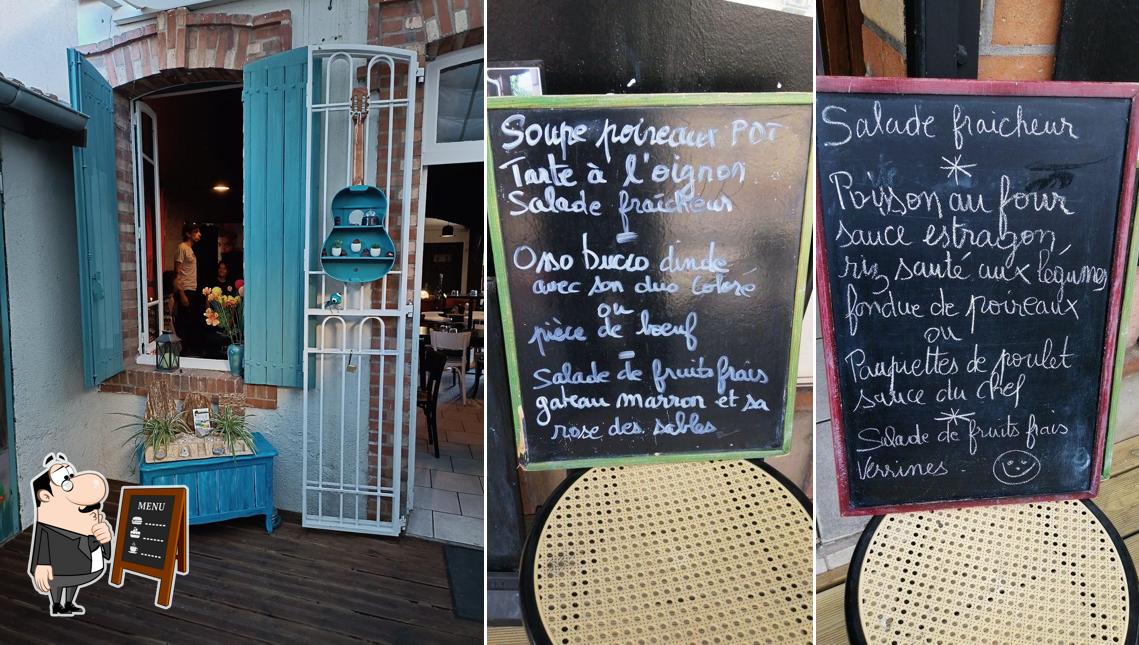 MENU
Soupe poireaux PDT
Tarte à l'oignon
Salade fraîcheur
Osso bucco dinde
avec son duo coloré
ou
pièce de boeuf
Salade de fruits frais
gateau marron et sa
rose des sables
Salade fraicheur
Poisson au four
sauce estragon,
riz sauté aux légumes
fondue de poireaux
ou
Paupiettes de poulet
sauce du chef
Salade de fruits frais
Verrines -